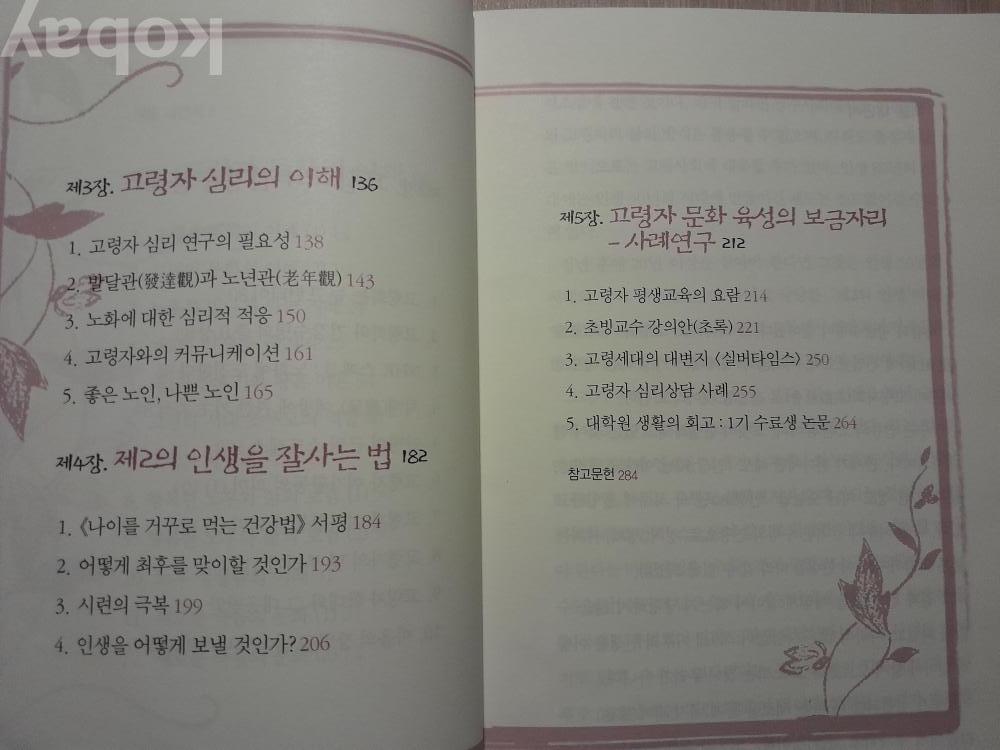 kobay
제3장. 고령자 심리의 이해 136
1. 고령자 심리 연구의 필요성 138
2. 발달관(發達觀)과 노년관(老年觀) 143
3. 노화에 대한 심리적 적응 150
4. 고령자와의 커뮤니케이션 161
5. 좋은 노인, 나쁜 노인 165
제4장. 제2의 인생을 잘사는 법 182
1. 《나이를 거꾸로 먹는 건강법》 서평 184
2. 어떻게 최후를 맞이할 것인가 193
3. 시련의 극복 199
4. 인생을 어떻게 보낼 것인가? 206
제5장. 고령자 문화 육성의 보금자리
- 사례연구 212
1. 고령자 평생교육의 요람 214
2. 초빙교수 강의안(초록) 221
3. 고령세대의 대변지 〈실버타임스〉 250
4. 고령자 심리상담 사례 255
5. 대학원 생활의 회고 : 1기 수료생 논문 264
참고문헌 284